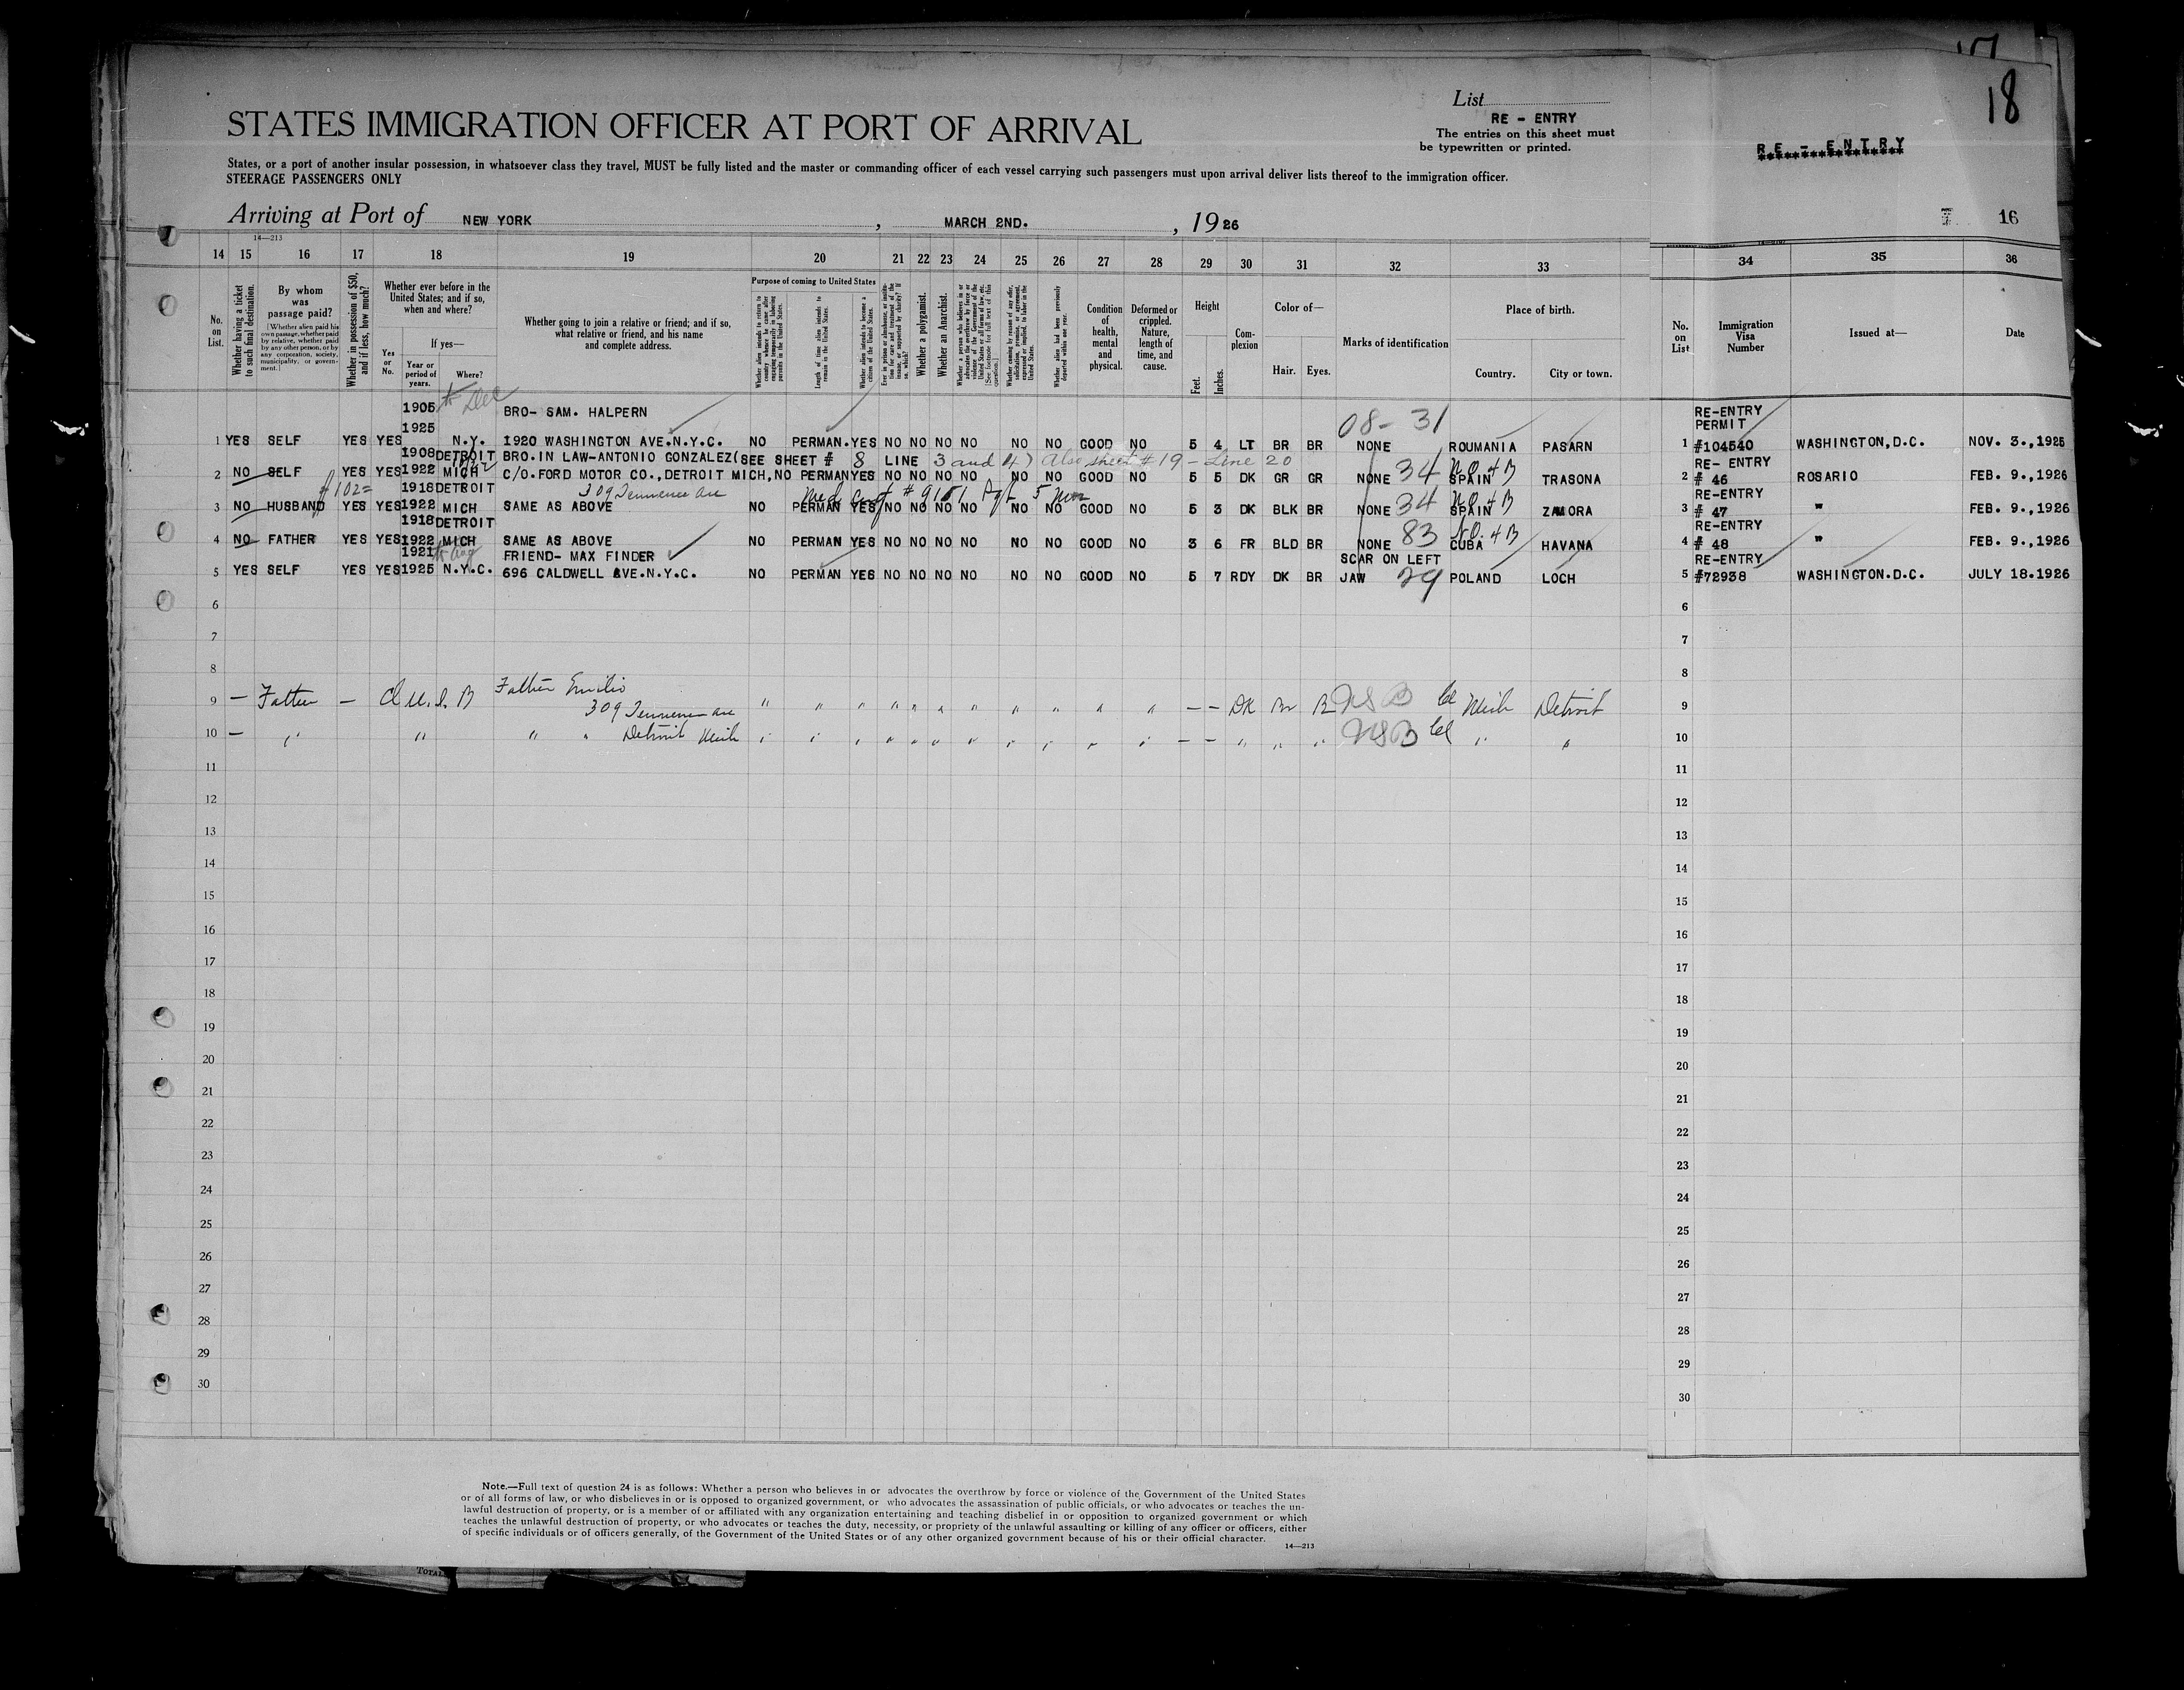 18
List
RE - ENTRY
The entries on this sheet must
be typewritten or printed.
STATES IMMIGRATION OFFICER AT PORT OF ARRIVAL
RE - ENTRY
States, or a port of another insular possession, in whatsoever class they travel, MUST be fully listed and the master or commanding officer of each vessel carrying such passengers must upon arrival deliver lists thereof to the immigration officer.
STEERAGE PASSENGERS ONLY
Arriving at Port of NEW YORK, MARCH 2ND., 1926
16
14—213
14 15 16 17 18 19 20 21 22 23 24 25 26 27 28 29 30 31 32 33 34 35 36
No. on List.
Whether having a ticket to such final destination.
By whom was passage paid?
[Whether alien paid his own passage, whether paid by relative, whether paid by any other person, or by any corporation, society, municipality, or government.]
Whether in possession of $50, and if less, how much?
Whether ever before in the United States; and if so, when and where?
Yes or No.
If yes—
Year or period of years.
Where?
Whether going to join a relative or friend; and if so, what relative or friend, and his name and complete address.
Purpose of coming to United States
Whether alien intends to return to country whence he came after engaging temporarily in laboring pursuits in the United States.
Length of time alien intends to remain in the United States.
Whether alien intends to become a citizen of the United States.
Whether a polygamist.
Whether an Anarchist.
Whether coming by reason of any offer, solicitation, promise, or agreement, expressed or implied, to labor in the United States.
Whether alien had been previously deported within one year.
Condition of health, mental and physical.
Deformed or crippled. Nature, length of time, and cause.
Height
Feet.
Inches.
Complexion
Color of—
Hair.
Eyes.
Marks of identification
Place of birth.
Country.
City or town.
No. on List
Immigration Visa Number
Issued at—
Date
1905 Dec
BRO- SAM. HALPERN
08-31
RE-ENTRY
1925
PERMIT
1 YES SELF YES YES N.Y. 1920 WASHINGTON AVE.N.Y.C. NO PERMAN. YES NO NO NO NO NO NO GOOD NO 5 4 LT BR BR NONE ROUMANIA PASARN 1 #104540 WASHINGTON,D.C. NOV. 3.,1925
1908 DETROIT BRO.IN LAW-ANTONIO GONZALEZ(SEE SHEET # 8 LINE 3 and 4) Also sheet #19 - Line 20
RE- ENTRY
2 NO SELF YES YES 1922 MICH C/O.FORD MOTOR CO.,DETROIT MICH, NO PERMAN YES NO NO NO NO NO NO GOOD NO 5 5 DK GR GR NONE 34 SPAIN TRASONA 2 # 46 ROSARIO FEB. 9.,1926
1918 DETROIT 309 Tennessee Ave
RE-ENTRY
3 NO HUSBAND YES YES 1922 MICH SAME AS ABOVE NO PERMAN YES NO NO NO NO NO NO GOOD NO 5 3 DK BLK BR NONE 34 SPAIN ZAMORA 3 # 47 " FEB. 9.,1926
1918 DETROIT
RE-ENTRY
4 NO FATHER YES YES 1922 MICH SAME AS ABOVE NO PERMAN YES NO NO NO NO NO NO GOOD NO 3 6 FR BLD BR NONE 83 CUBA HAVANA 4 # 48 " FEB. 9.,1926
1921 Aug FRIEND- MAX FINDER
SCAR ON LEFT
RE-ENTRY
5 YES SELF YES YES 1925 N.Y.C. 696 CALDWELL AVE.N.Y.C. NO PERMAN YES NO NO NO NO NO NO GOOD NO 5 7 RDY DK BR JAW 29 POLAND LOCH 5 #72938 WASHINGTON.D.C. JULY 18.1926
6 6
7 7
8 8
Father Emilio
9 — Father — 309 Tennessee Ave " " " " " " " " " " " — — DK Br B USB Mich Detroit 9
10 — " " " " Detroit Mich " " " " " " " " " " " — — " " " USB " " 10
11 11
12 12
13 13
14 14
15 15
16 16
17 17
18 18
19 19
20 20
21 21
22 22
23 23
24 24
25 25
26 26
27 27
28 28
29 29
30 30
Note.—Full text of question 24 is as follows: Whether a person who believes in or advocates the overthrow by force or violence of the Government of the United States
or of all forms of law, or who disbelieves in or is opposed to organized government, or who advocates the assassination of public officials, or who advocates or teaches the un-
lawful destruction of property, or is a member of or affiliated with any organization entertaining and teaching disbelief in or opposition to organized government or which
teaches the unlawful destruction of property, or who advocates or teaches the duty, necessity, or propriety of the unlawful assaulting or killing of any officer or officers, either
of specific individuals or of officers generally, of the Government of the United States or of any other organized government because of his or their official character.
14—213